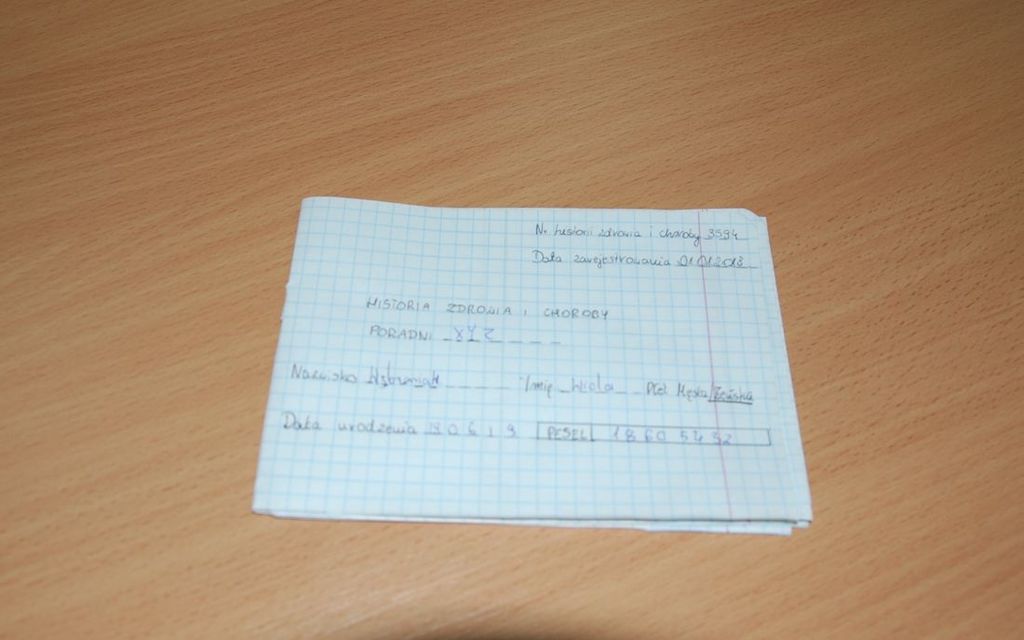 Nr historii zdrowia i choroby 3594
Data zarejestrowania 01.01.2013
HISTORIA ZDROWIA I CHOROBY
PORADNI XYZ
Nazwisko Imię Wiola Płeć Męska/Żeńska
Data urodzenia PESEL